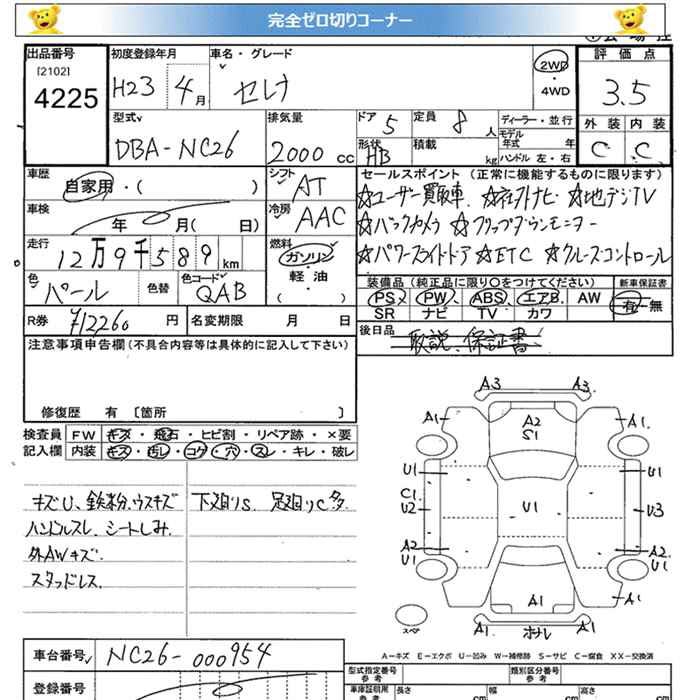 完全ゼロ切りコーナー
出品番号 初度登録年月 車名・グレード 評価点
[2102]
4225 H23 4月 セレナ 2WD ・ 4WD 3.5
型式 排気量 ドア 5 定員 8人 ディーラー・並行 外装 内装
DBA-NC26 2000cc 形状 HB 積載 kg モデル年式 年 ハンドル左・右 C C
車歴 自家用・( ) シフト AT セールスポイント (正常に機能するものに限ります)
☆ユーザー買取車 ☆純正ナビ ☆地デジTV
車検 年 月( 日) 冷房 AAC ☆バックカメラ ☆フリップダウンモニター
走行 12万9千589km 燃料 ガソリン ・ 軽・油 ( ) ☆パワースライドドア ☆ETC ☆クルーズコントロール
色 パール 色替 色コード QAB 装備品 (純正品に限り○をつけてください) 新車保証書
PS PW ABS エアB. AW 有・無
SR ナビ TV カワ
R券 ¥12260円 名変期限 月 日 後日品 取説、保証書
注意事項申告欄(不具合内容等は具体的に記入して下さい)
修復歴 有 〔箇所 〕
検査員 FW キズ・飛石・ヒビ割・リペア跡・×要
記入欄 内装 キズ・汚し・コゲ・穴・スレ・キレ・破レ
キズU、鉄粉、ウスキズ 下廻りS. 足廻りC多
ハンドルスレ、シートしみ
外AWキズ
スタッドレス.
A3 A3
A1 A2 S1 A1.
U1 U1
C1 U2 U1 U3
A2 U1 A2 U1
A1 A1
A1. ホナレ A1.
スペア
A-キズ E-エクボ U-凹み W-補修跡 S-サビ C-腐食 XX-交換済
車台番号 NC26-000954
型式指定番号 参考 類別区分番号 参考
登録番号 車庫証明用 参考 長さ cm 幅 cm 高さ cm